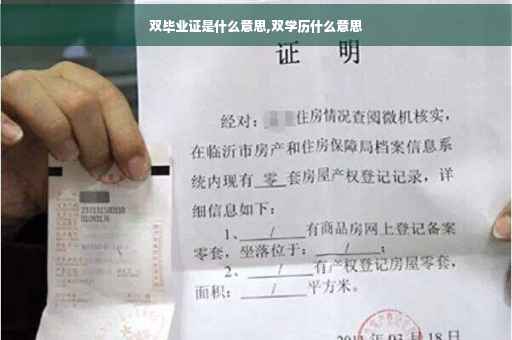 双毕业证是什么意思,双学历什么意思
证 明
经对: 住房情况查阅微机核实,
在临沂市房产和住房保障局档案信息系
统内现有 零 套房屋产权登记记录, 详
细信息如下:
1、 / 有商品房网上登记备案
零套, 坐落位于: / ;
2、 / 有产权登记房屋零套,
面积: / 平方米。